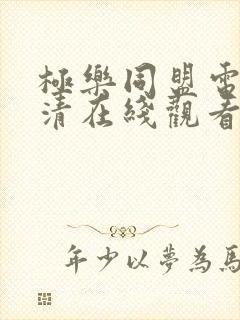 極樂同盟電
清在綫觀看
年少以夢為馬